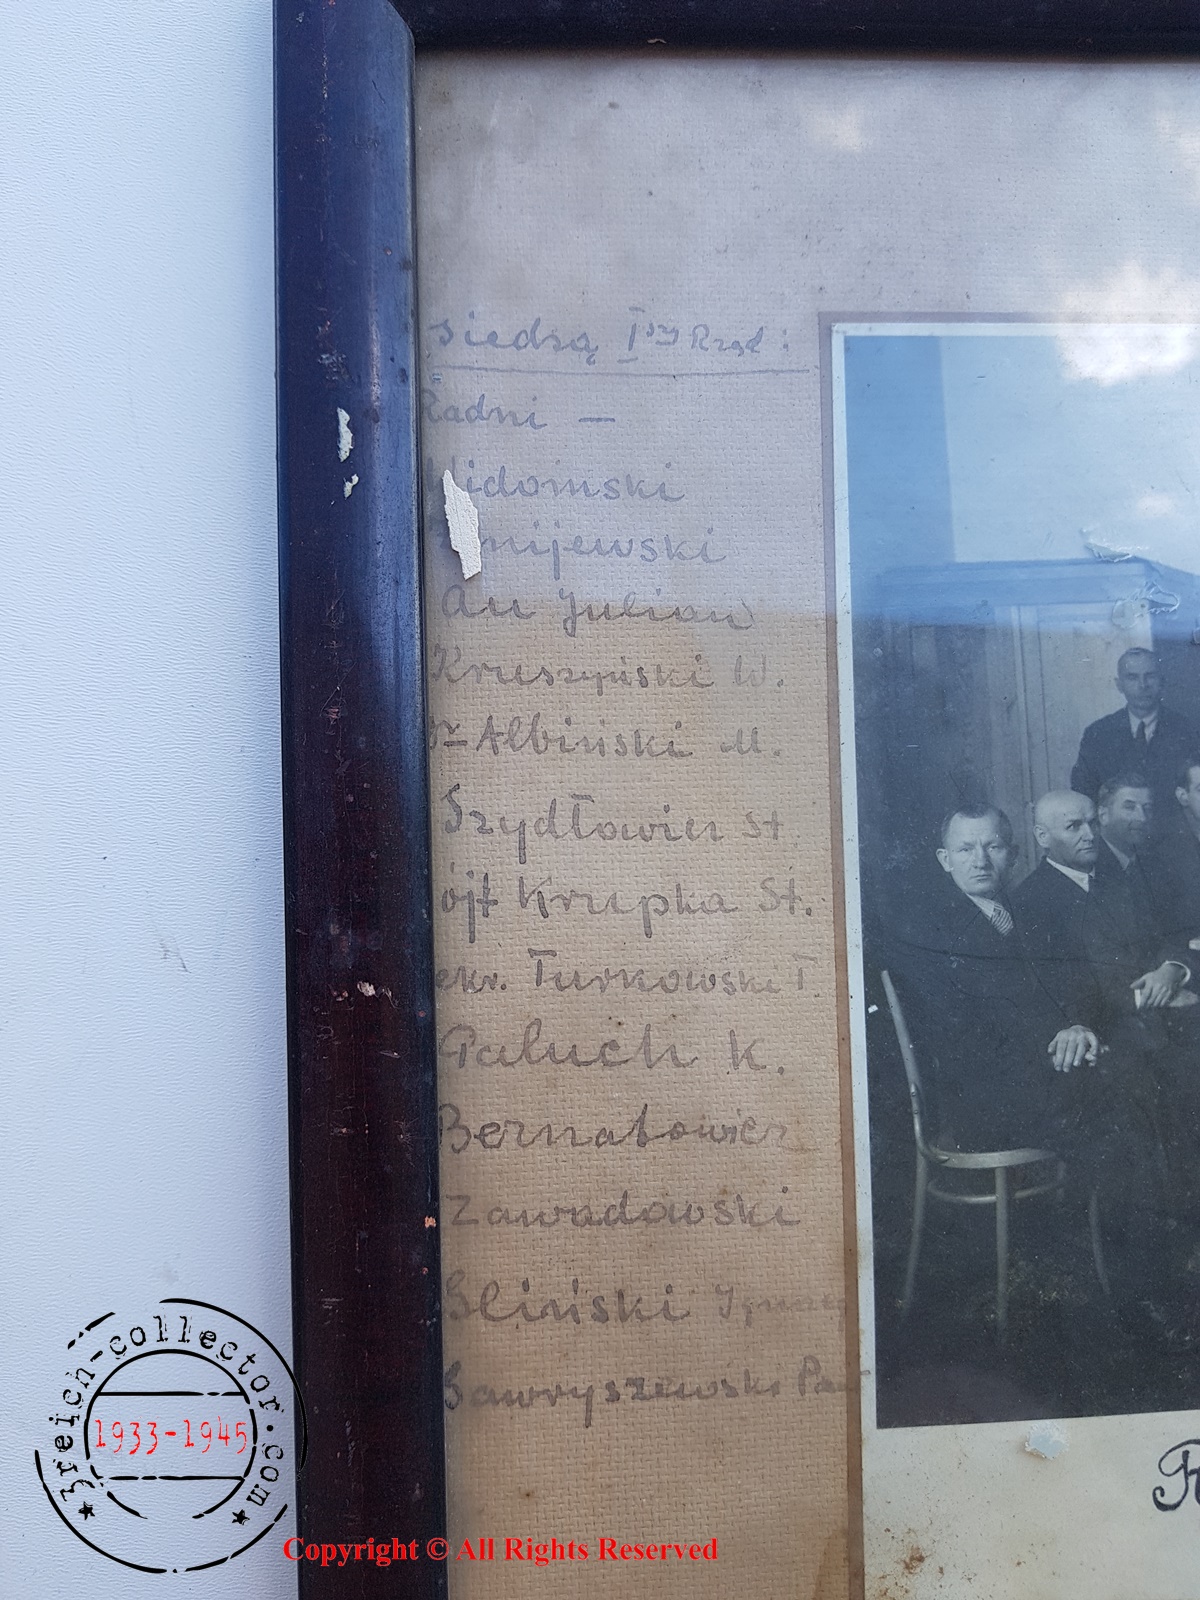 siedzą I-szy Rząd :
Radni —
Widomski
Żmijewski
Au Julian
Krzeszyński W.
Albiński M.
Szydłowicz St
ójt Krzepka St.
ekr. Turkowski T.
Paluch K.
Bernatowicz
Zawadowski
Śliński Ignacy
Gawryszewski
3reich-collector.com
1933-1945
Copyright © All Rights Reserved